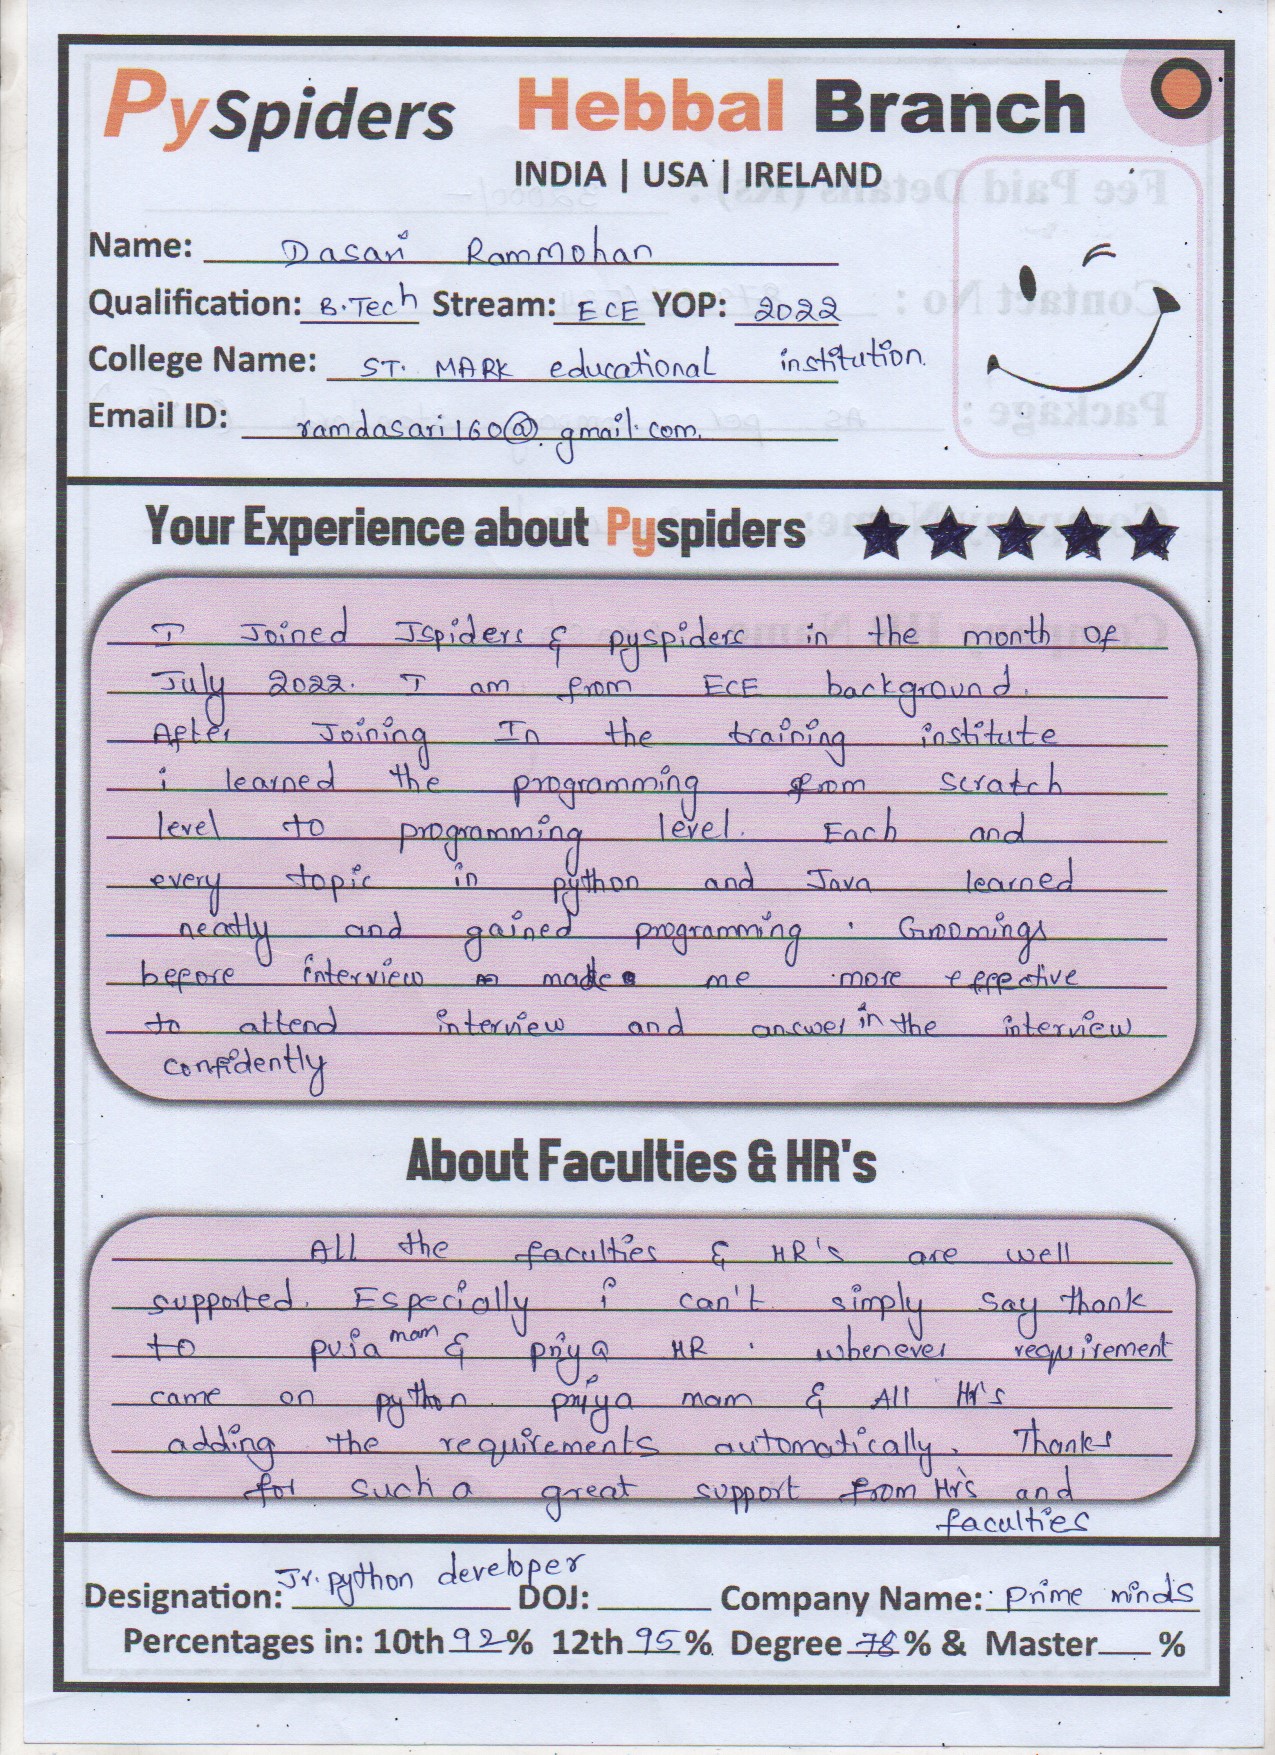 PySpiders Hebbal Branch
INDIA | USA | IRELAND
Fee Paid Details (Rs) :
Name: Dasari Rammohan
Contact No :
Qualification: B.Tech Stream: ECE YOP: 2022
College Name: ST. MARK educational institution.
Package : As per company
Email ID: ramdasari160@gmail.com.
Your Experience about Pyspiders
I Joined Jspiders & pyspiders in the month of
July 2022. I am from ECE background.
After Joining In the training institute
i learned the programming from scratch
level to programming level. Each and
every topic in python and Java learned
neatly and gained programming . Groomings
before interview made me more effective
to attend interview and answer in the interview
confidently
About Faculties & HR's
All the faculties & HR's are well
supported. Especially i can't simply say thank
to puja mam & priya HR . whenever requirement
came on python priya mam & All Hr's
adding the requirements automatically. Thanks
for such a great support from Hr's and
faculties
Designation: Jr. python developer DOJ: Company Name: prime minds
Percentages in: 10th 92% 12th 95% Degree 78% & Master %